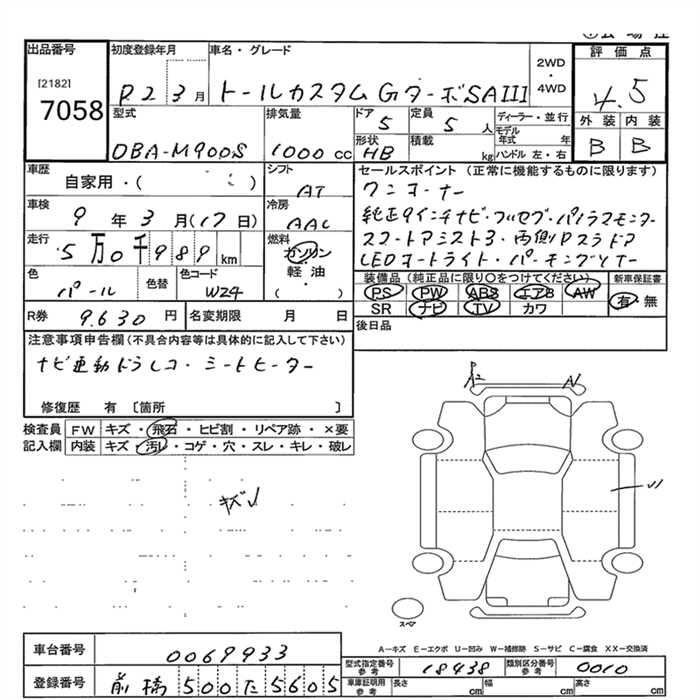 出品番号
[2182]
7058
初度登録年月
R2 3月
車名・グレード
トールカスタムGターボSAIII
2WD
・
4WD
評価点
4.5
外装 内装
B B
型式
DBA-M900S
排気量
1000 cc
ドア
5
定員
5 人
形状
HB
積載
kg
ディーラー・並行
モデル年式 年
ハンドル 左・右
車歴
自家用・( )
シフト
AT
車検
9年3月(17日)
冷房
AAC
走行
5万0千989 km
燃料
ガソリン
・
軽油
( )
色
パール
色替
色コード
W24
R券
9.630円
名変期限 月 日
セールスポイント (正常に機能するものに限ります)
ワンオーナー
純正9インチナビ・フルセグ・パノラマモニター
スマートアシスト3・両側Pスラドア
LEDオートライト・パーキングソナー
装備品(純正品に限り○をつけてください)
PS PW ABS エアB AW
SR ナビ TV カワ
新車保証書
有・無
後日品
注意事項申告欄(不具合内容等は具体的に記入して下さい)
ナビ連動ドラレコ・シートヒーター
修復歴 有 [箇所 ]
検査員
記入欄
FW キズ・飛石・ヒビ割・リペア跡・×要
内装 キズ・汚レ・コゲ・穴・スレ・キレ・破レ
A2
キズ
スペア
A-キズ E-エクボ U-凹み W-補修跡 S-サビ C-腐食 XX-交換済
車台番号
0069933
登録番号
前橋500た5605
型式指定番号
参考
18438
類別区分番号
参考
0010
車庫証明用
参考
長さ cm
幅 cm
高さ cm